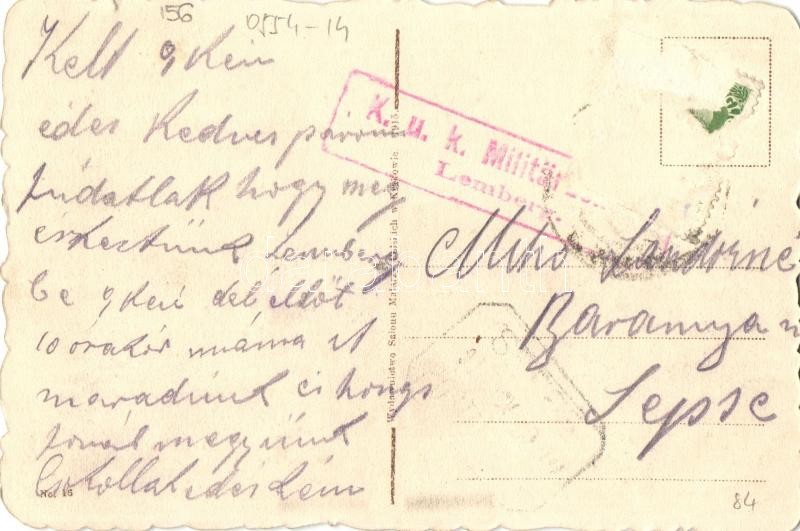 156
0554-14
Kelt 9 Kén
édes Kedves párom
tudatlak hogy meg
érkeztünk Lemberg
be 9 Kén dél előtt
10 órakór máma it
maradunk és
megyünk
Csokollak édes
No. 15
Wydawnictwo Salonu Malarzy Polskich w Krakowie 1915.
K. u. k. Militär
Lemberg.
Miko Sándorné
Baranya m
Sepse
84